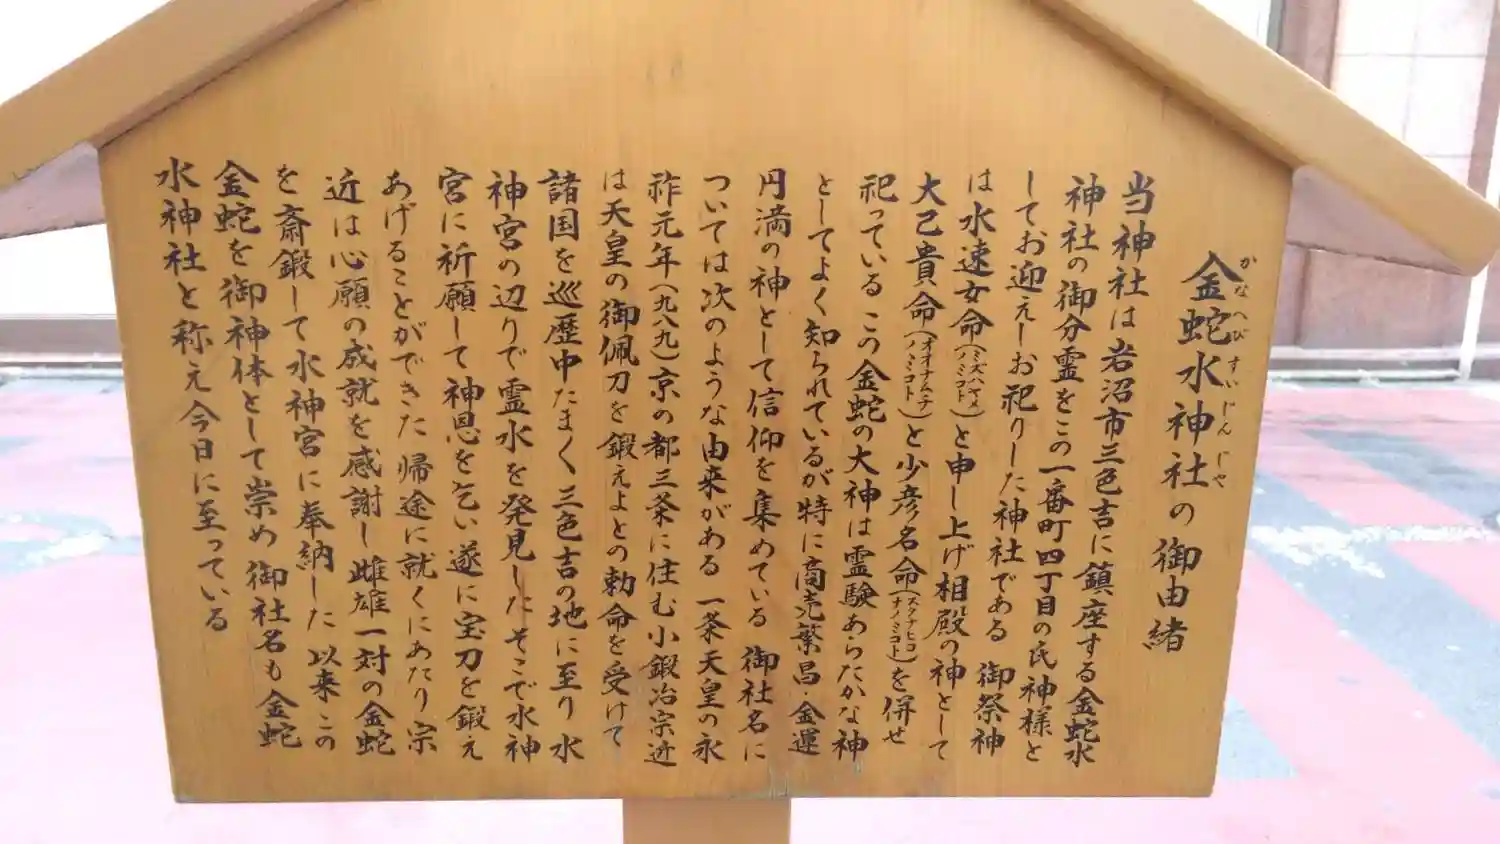 金蛇水神社の御由緒
かなへびすいじんじや
当神社は岩沼市三色吉に鎮座する金蛇水
神社の御分霊をこの一番町四丁目の氏神様と
してお迎えしお祀りした神社である 御祭神
は水速女命(ミズハヤメノミコト)と申し上げ相殿の神として
大己貴命(オオナムチノミコト)と少彦名命(スクナヒコナノミコト)を併せ
祀っている この金蛇の大神は霊験あらたかな神
としてよく知られているが特に商売繁昌・金運
円満の神として信仰を集めている 御社名に
ついては次のような由来がある 一条天皇の永
祚元年(九八九)京の都三条に住む小鍛冶宗近
は天皇の御佩刀を鍛えよとの勅命を受けて
諸国を巡歴中たまく三色吉の地に至り水
神宮の辺りで霊水を発見した そこで水神
宮に祈願して神恩を乞い遂に宝刀を鍛え
あげることができた 帰途に就くにあたり宗
近は心願の成就を感謝し雌雄一対の金蛇
を斎鍛して水神宮に奉納した 以来この
金蛇を御神体として崇め 御社名も金蛇
水神社と称え今日に至っている